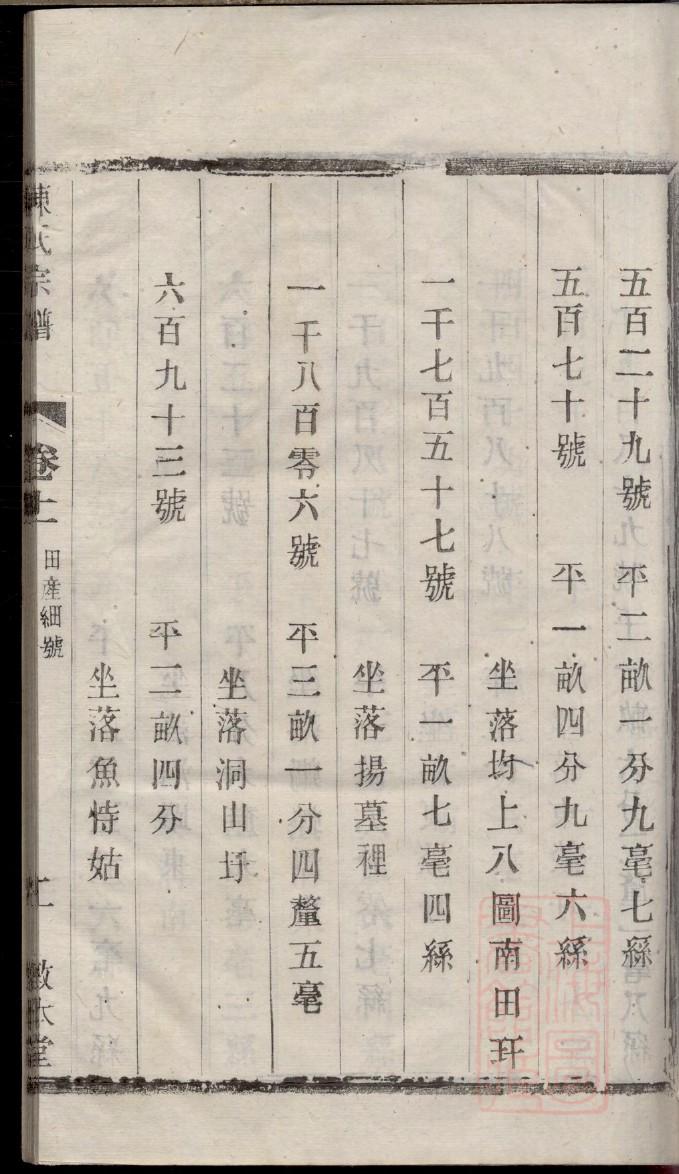 五百二十九號 平二畝一分九毫七絲
五百七十號 平一畝四分九毫六絲
坐落均上八圖南田玕
一千七百五十七號 平一畝七毫四絲
坐落揚墓裡
一千八百零六號 平三畝一分四釐五毫
坐落洞山圩
六百九十三號 平二畝四分
坐落魚恃姑
陳氏宗譜 卷十 田產細號